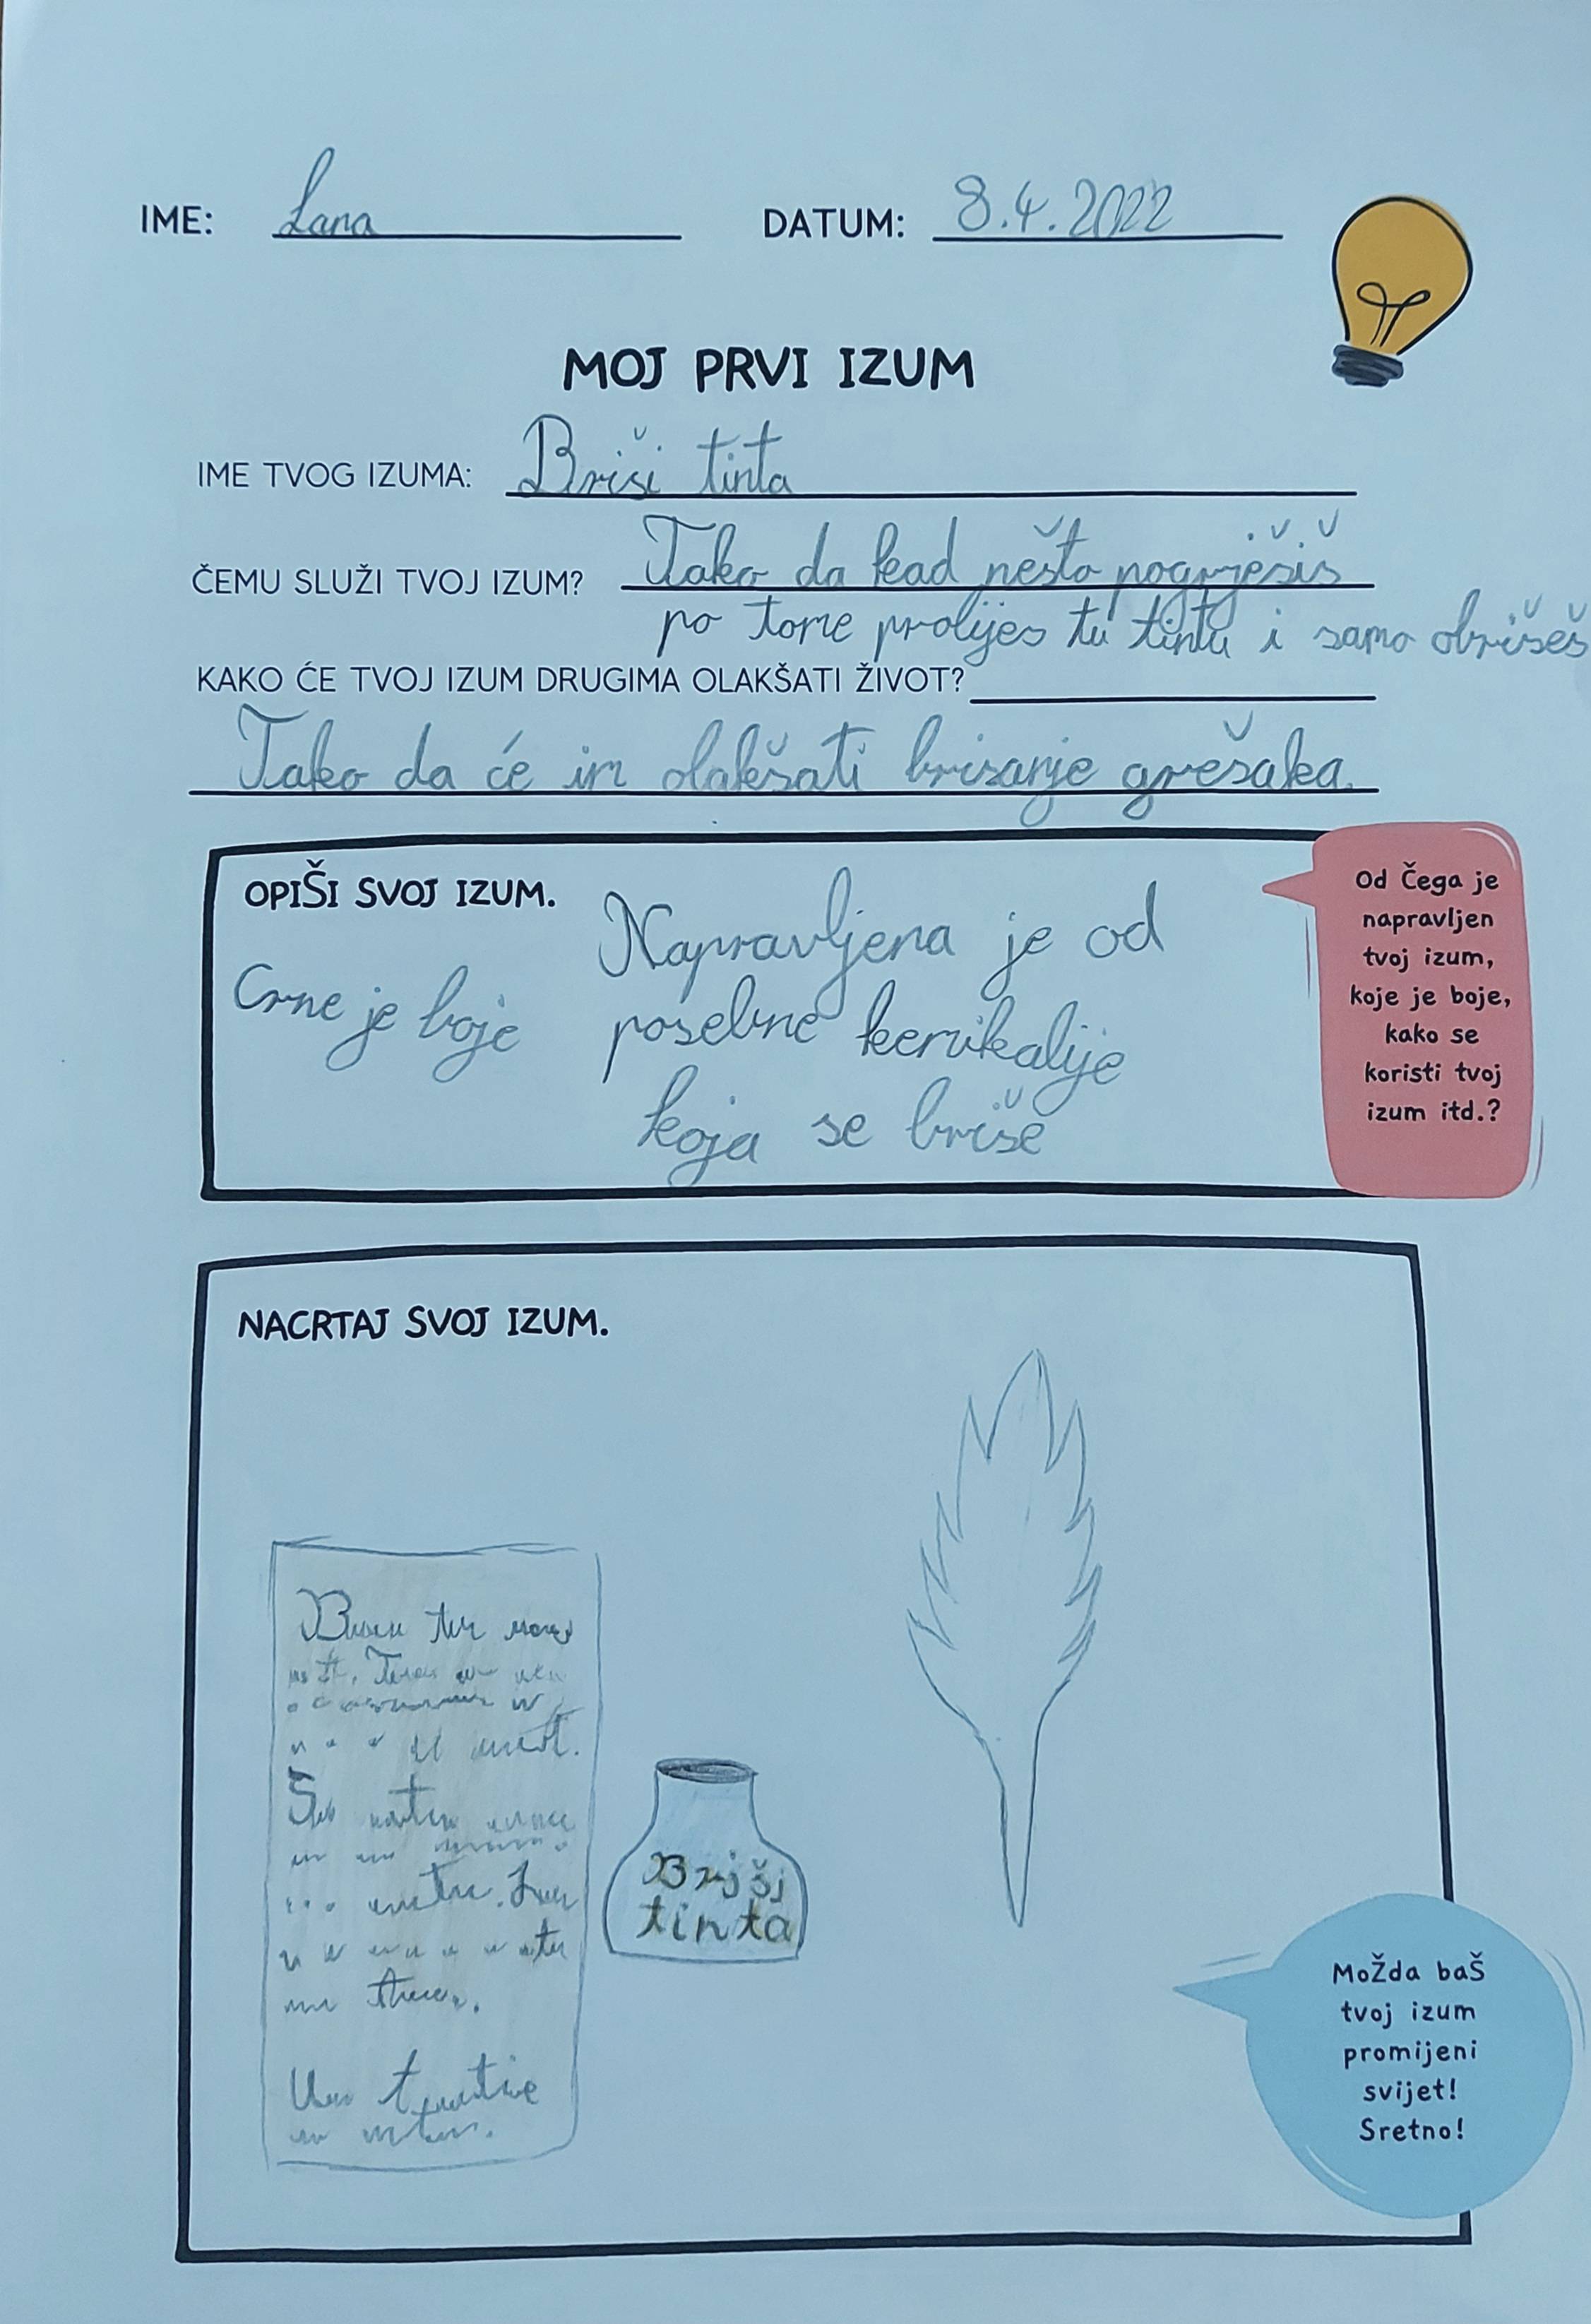 IME: Lana DATUM: 8.4.2022
MOJ PRVI IZUM
IME TVOG IZUMA: Briši tinta
ČEMU SLUŽI TVOJ IZUM? Tako da kad nešto pogrješiš
po tome prolijes tu tintu i samo obrišeš
KAKO ĆE TVOJ IZUM DRUGIMA OLAKŠATI ŽIVOT?
Tako da će im olakšati brisanje grešaka.
OPIŠI SVOJ IZUM.
Crne je boje
Napravljena je od
posebne kemikalije
koja se briše
Od Čega je
napravljen
tvoj izum,
koje je boje,
kako se
koristi tvoj
izum itd.?
NACRTAJ SVOJ IZUM.
Briši
tinta
MoŽda baŠ
tvoj izum
promijeni
svijet!
Sretno!